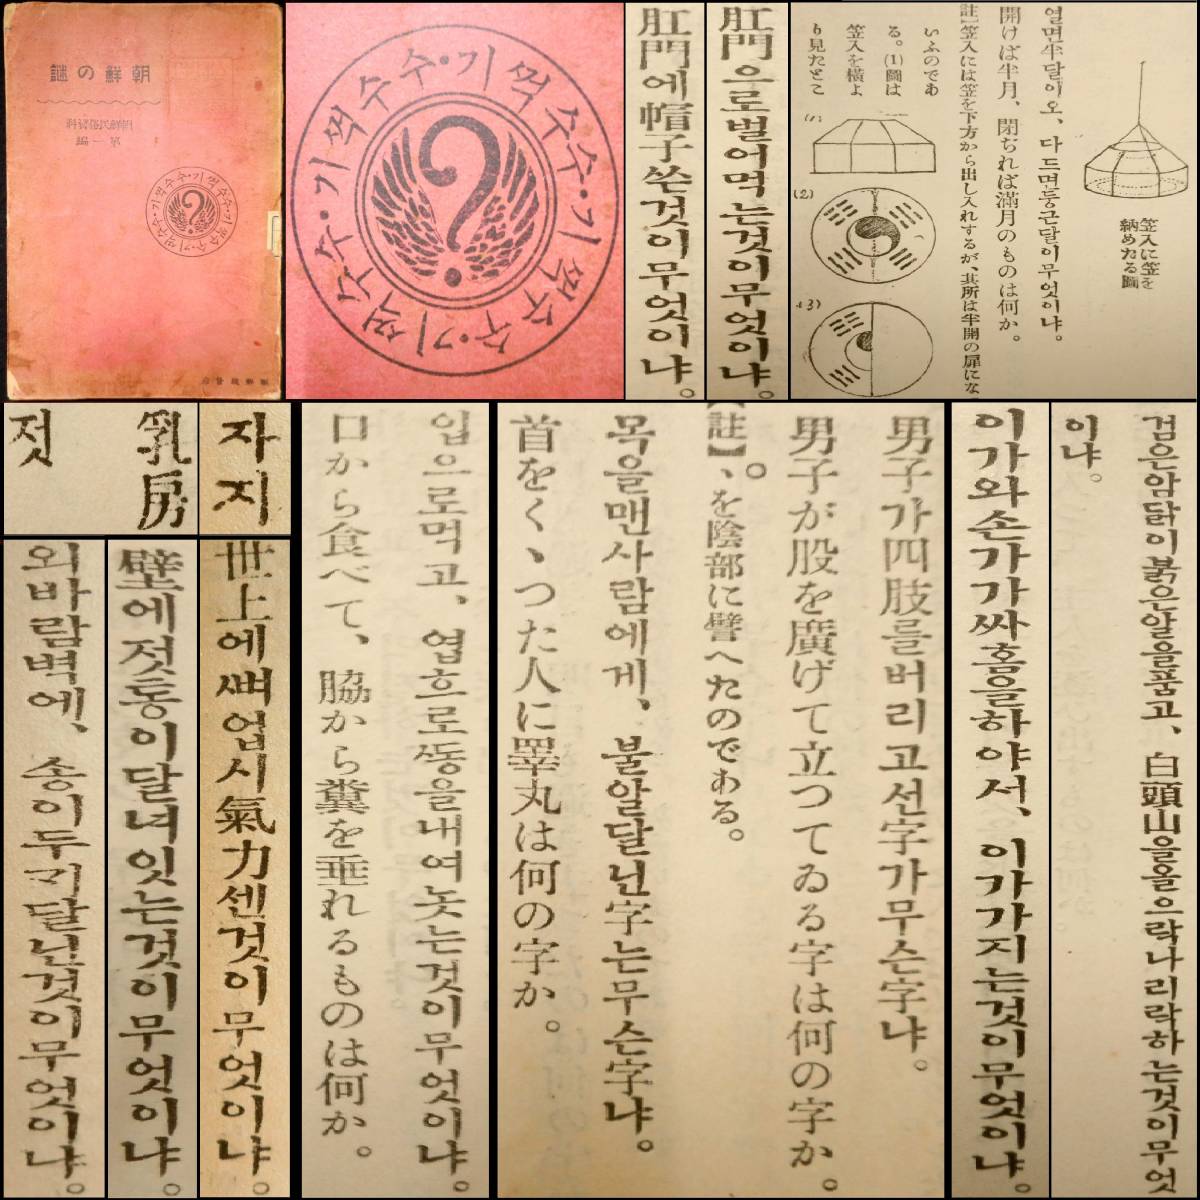 朝鮮の謎
朝鮮民俗資料
第一編
수수·기꺽수수·기꺽수수·기꺽수수·기꺽
朝鮮總督府
수수·기꺽수수·기꺽수수·기꺽수수·기꺽
肛門으로벌어먹는것이무엇이냐。
肛門에帽子쓴것이무엇이냐。
笠入に笠を
納めたる圖
열면半달이오、다드면둥근달이무엇이냐。
開けば半月、閉ぢれば滿月のものは何か。
註】笠入には笠を下方から出し入れするが、其所は半開の扉にな
いふのであ
る。(1)圖は
笠入を橫よ
り見たとこ
(1)
(2)
(3)
乳房
젓
자지
世上에뼈업시氣力센것이무엇이냐。
壁에젓동이달녀잇는것이무엇이냐。
외바람벽에、송이두개달닌것이무엇이냐。
입으로먹고、엽흐로똥을내여놋는것이무엇이냐。
口から食べて、脇から糞を垂れるものは何か。
男子가四肢를버리고선字가무슨字냐。
男子が股を廣げて立つてゐる字は何の字か。
【註】、を陰部に譬へたのである。
목을맨사람에게、불알달닌字는무슨字냐。
首をくゝつた人に睪丸は何の字か。
이가와손가가싸홈을하야서、이가가지는것이무엇이냐。
검은암닭이붉은알을품고、白頭山을올으락나리락하는것이무엇
이냐。